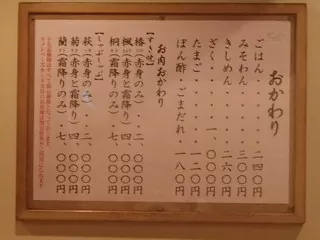 おかわり
ごはん・・・・二四〇円
みそわん・・・三〇〇円
きしめん・・・二六〇円
ざく・・・一、〇〇〇円
たまご・・・・一二〇円
ぽん酢・ごまだれ・一八〇円
お肉おかわり
【すきやき】
椿（赤身のみ）・・二、〇〇〇円
楓（赤身と霜降り）四、〇〇〇円
桐（霜降りのみ）・七、〇〇〇円
【しゃぶしゃぶ】
萩（赤身のみ）・・二、〇〇〇円
菊（赤身と霜降り）四、〇〇〇円
蘭（霜降りのみ）・七、〇〇〇円